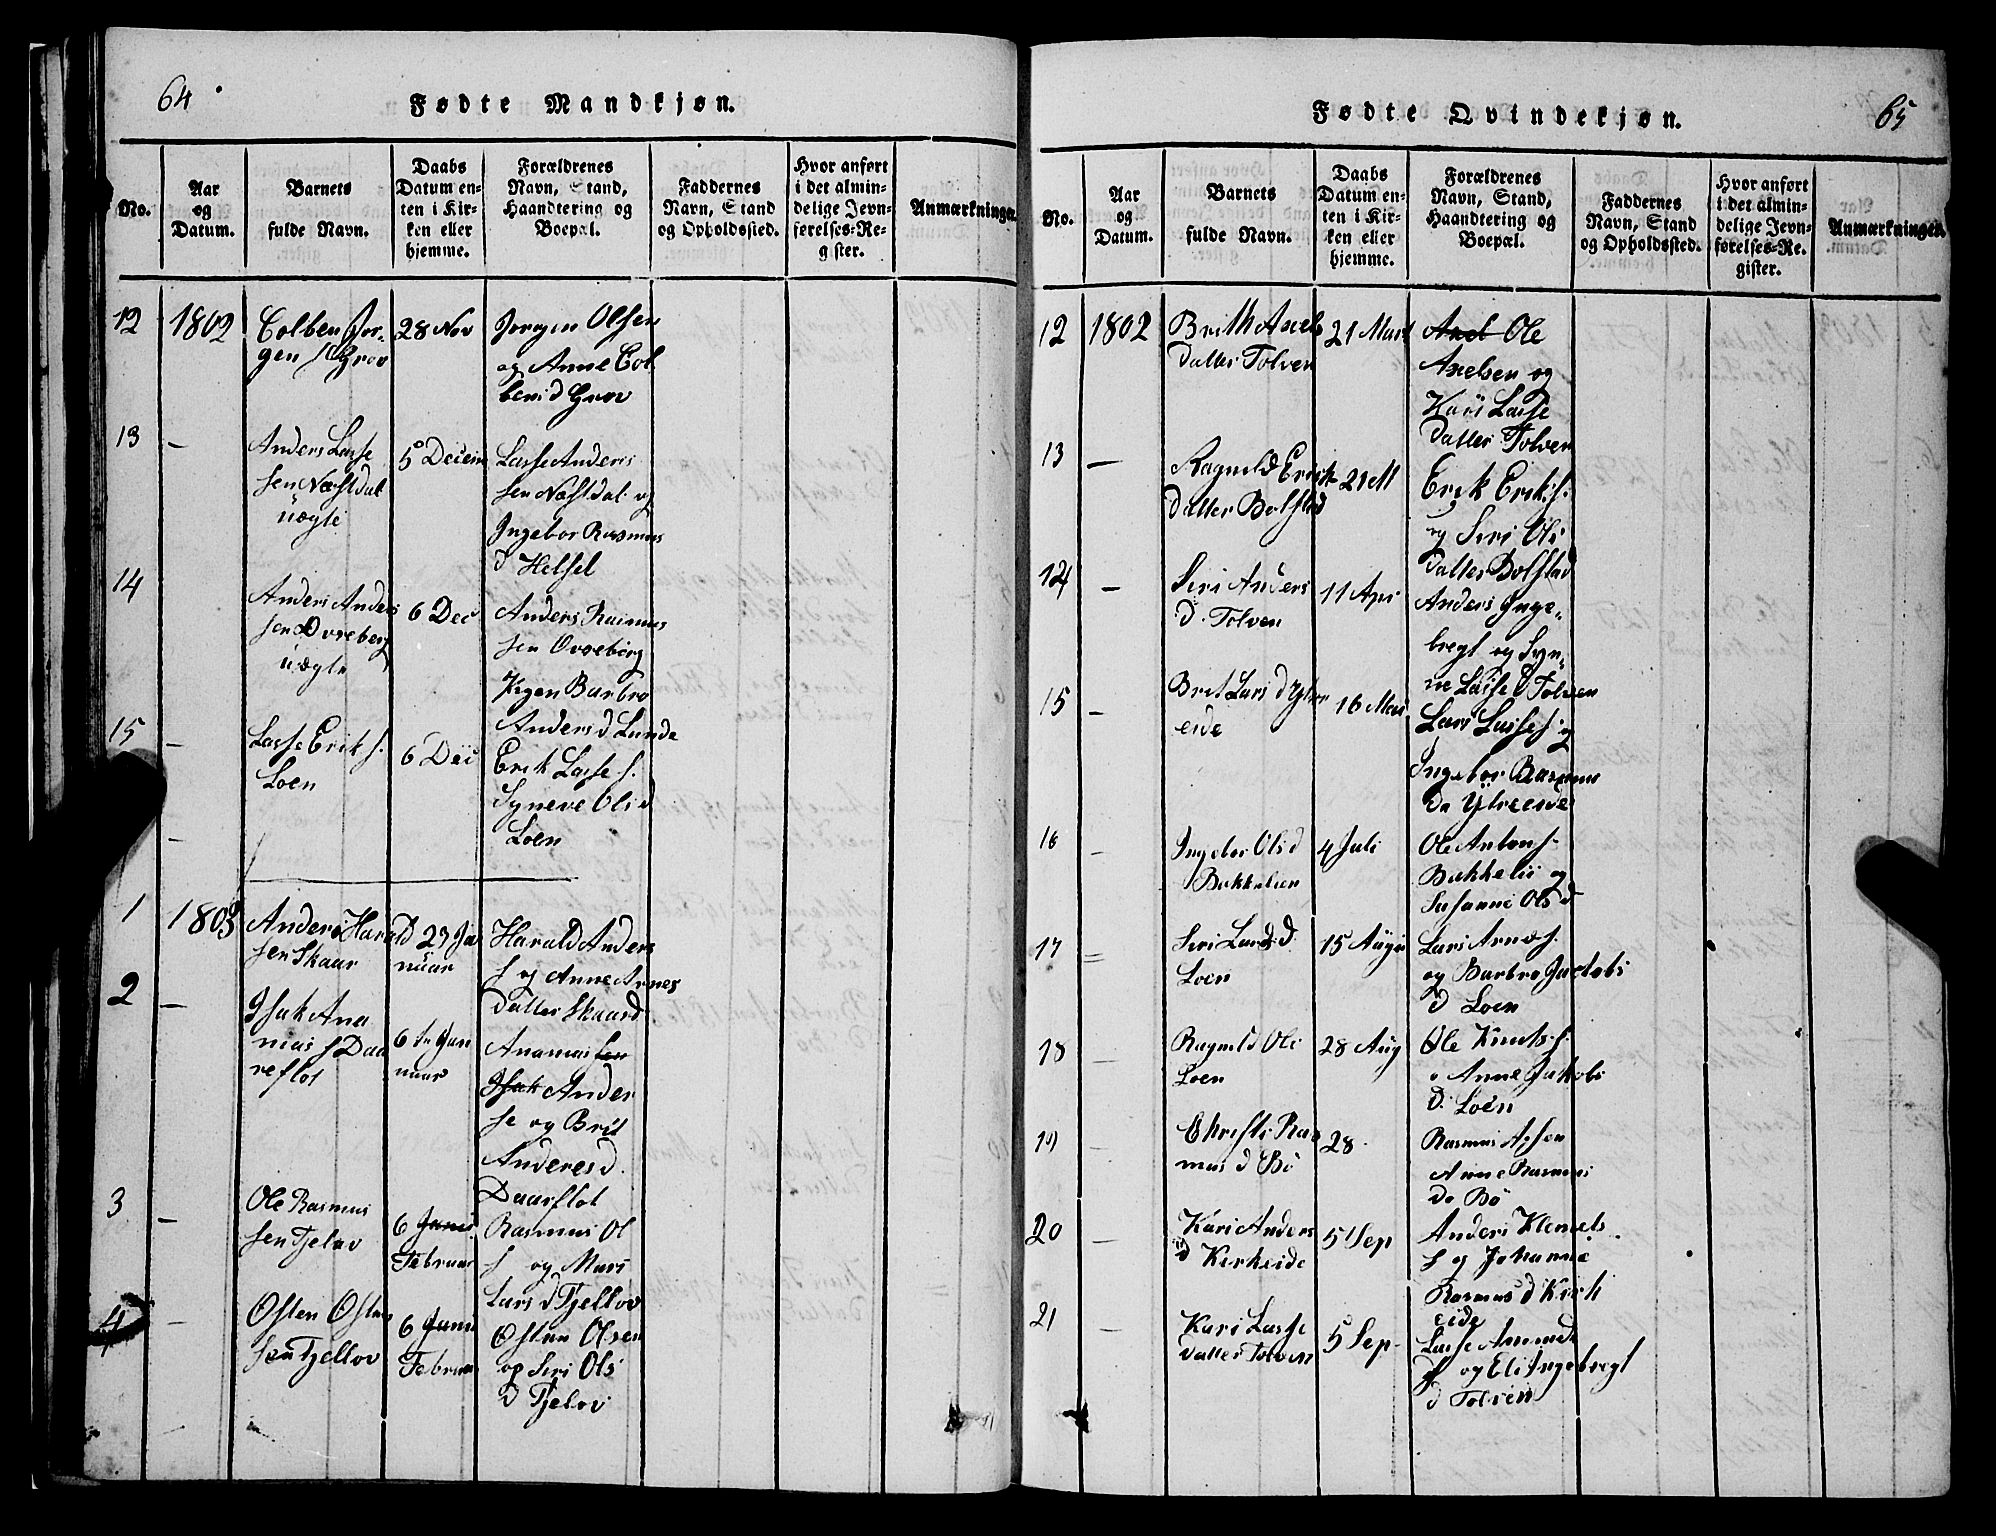 64
Fødte Mandkjøn.
No.
Aar
og
Datum.
Barnets
fulde Navn.
Daabs
Datum en-
ten i Kir-
ken eller
hjemme.
Forældrenes
Navn, Stand,
Haandtering og
Boepæl.
Faddernes
Navn, Stand
og Opholdssted.
Hvor anført
i det almin-
delige Jevn-
førelses-Re-
gister.
Anmærkninger.
12 1802
Colben Jør-
gen S Grov
28 Nov
Jørgen Olsen
og Anne Col
bens d Grov
13 —
Anders Lasse
sen Næstdal
uægte
5 Decem
Lasse Anders
sen Næstdal og
Ingebor Rasmus
d Helset
14
Anders Anders
sen Ovreberg
uægte
6 Dec
Anders Rasmus
sen Ovreberg
Pigen Barbro
Anders d Lunde
15 —
Lasse Erik s.
Loen
6 Dec
Erik Lasse s.
Syneve Ols d
Loen
—
1 1803
Anders Harald
sen Skaar
23 Ja
nuar
Harald Anders
s og Anne Arnes
datter Skaar
2 —
Isak Ana
nias s Daa
reflot
6 Jan
nuar
Ananias sen
Isak Ander
se og Brit
Anderes d.
Daareflot
3 —
Ole Rasmus
sen Tjelov
6 Janu
Februar
Rasmus Ol
s og Mari
Lars d Tjellov
4 —
Østen Østen
sen Tjellov
6 Janu
Februar
Østen Olsen
og Siri Ols
d Tjelov
65
Fødte Qvindekjøn.
No.
Aar
og
Datum.
Barnets
fulde Navn.
Daabs
Datum en-
ten i Kir-
ken eller
hjemme.
Forældrenes
Navn, Stand,
Haandtering og
Boepæl.
Faddernes
Navn, Stand
og Opholdssted.
Hvor anført
i det almin-
delige Jevn-
førelses-Re-
gister.
Anmærkninger.
12 1802
Brith Axels
datter Tolven
21 Mart
Axel Ole
Axelsen og
Kari Lasse
datter Tolven
13 —
Ragnild Erik
datter Bolstad
21 M
Erik Erik s.
og Siri Ols
datter Bolstad
14 —
Siri Anders
d. Tolven
11 Apr
Anders Inge-
bregt og Syn-
ne Lasse d Tolven
15 —
Brit Lars d Ytre
eide
16 Mai
Lars Lasse s og
Ingebor Rasmus
da Ytreeide
16 —
Ingebor Ols d
Bukkelien
4 Juli
Ole Anton s.
Bukkelii og
Susanne Ols d
17
Siri Lars d.
Loen
15 Augu
Lars Arne s.
og Barbro Jacobs
d Loen
18 —
Ragnild Ols
Loen
28 Aug
Ole Knuts s.
o Anne Jakobs
d. Loen
19 —
Christi Ras
mus d Bø
28.
Rasmus Apsen
Anne Rasmus
da Bø
20 —
Kari Anders
d Kirkeide
5 Sep
Anders Klemets
s og Johanne
Rasmus d Kirk
eide
21 —
Kari Lasse
datter Tolven
5 Sep.
Lasse Amunds
s og Eli Ingebregt
d Tolven